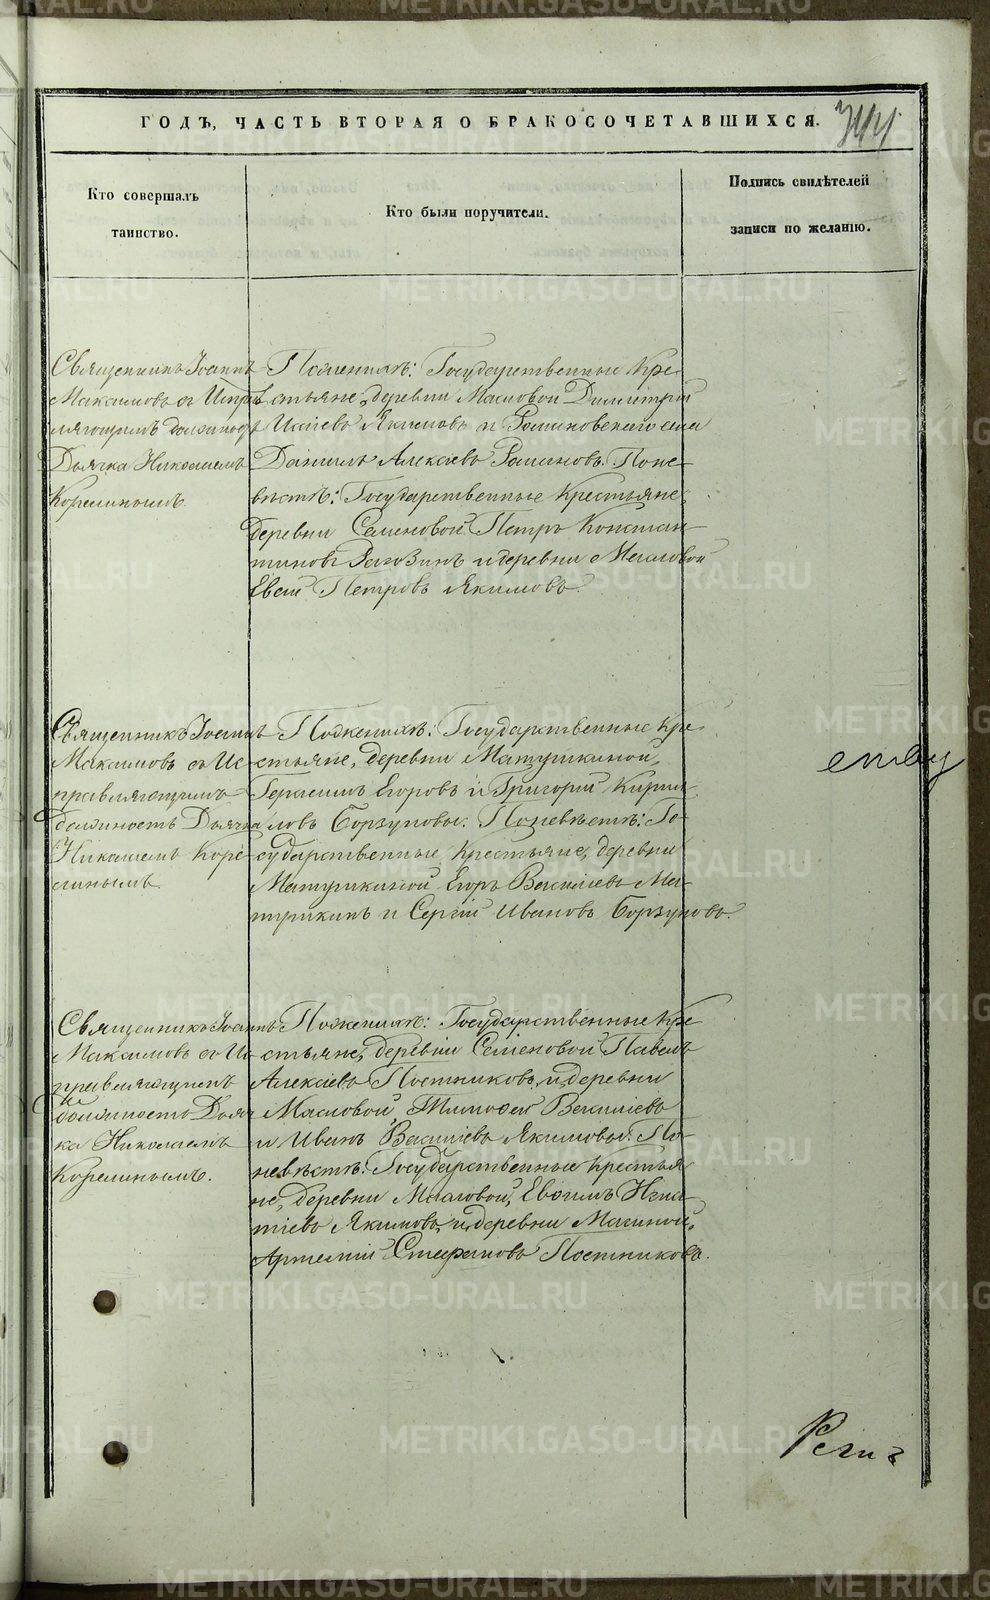 ГОДЪ, ЧАСТЬ ВТОРАЯ О БРАКОСОЧЕТАВШИХСЯ.
344
Кто совершалъ
таинство.
Кто были поручители.
Подпись свидѣтелей
записи по желанію.
Священникъ Іоаннъ
Максимовъ съ Исправ
ляющимъ должность
Дьячка Николаемъ
Корелинымъ.
Поженихѣ: Государственные Кре
стьяне, деревни Масловой Димитрій
Исаіевъ Якимовъ и Романовскаго села
Данилъ Алексѣевъ Романовъ. Поне
вѣстѣ: Государственные Крестьяне,
деревни Семеновой Петръ Констан
тиновъ Рагозинъ и деревни Масловой
Евсій Петровъ Якимовъ.
Священникъ Іоаннъ
Максимовъ съ Ис
правляющимъ
должность Дьячка
Николаемъ Коре
линымъ.
Поженихѣ: Государственные Кре
стьяне, деревни Матушкиной,
Герасимъ Егоровъ и Григорій Кирил
ловъ Борзуновы. Поневѣстѣ: Го
сударственные Крестьяне, деревни
Матушкиной Егоръ Василіевъ Ма
тушкинъ и Сергій Ивановъ Борзуновъ.
Священникъ Іоаннъ
Максимовъ съ Ис
правляющимъ
должность Дьяч
ка Николаемъ
Корелинымъ.
Поженихѣ: Государственные Кре
стьяне, деревни Семеновой Павелъ
Алексѣевъ Постниковъ, и деревни
Масловой Тимофей Василіевъ
и Иванъ Василіевъ Якимовы. По
невѣстѣ: Государственные Крестья
не, деревни Масловой, Евфимъ Игна
тіевъ Якимовъ, и деревни Махиной,
Артемій Стефановъ Постниковъ.
METRIKI.GASO-URAL.RU